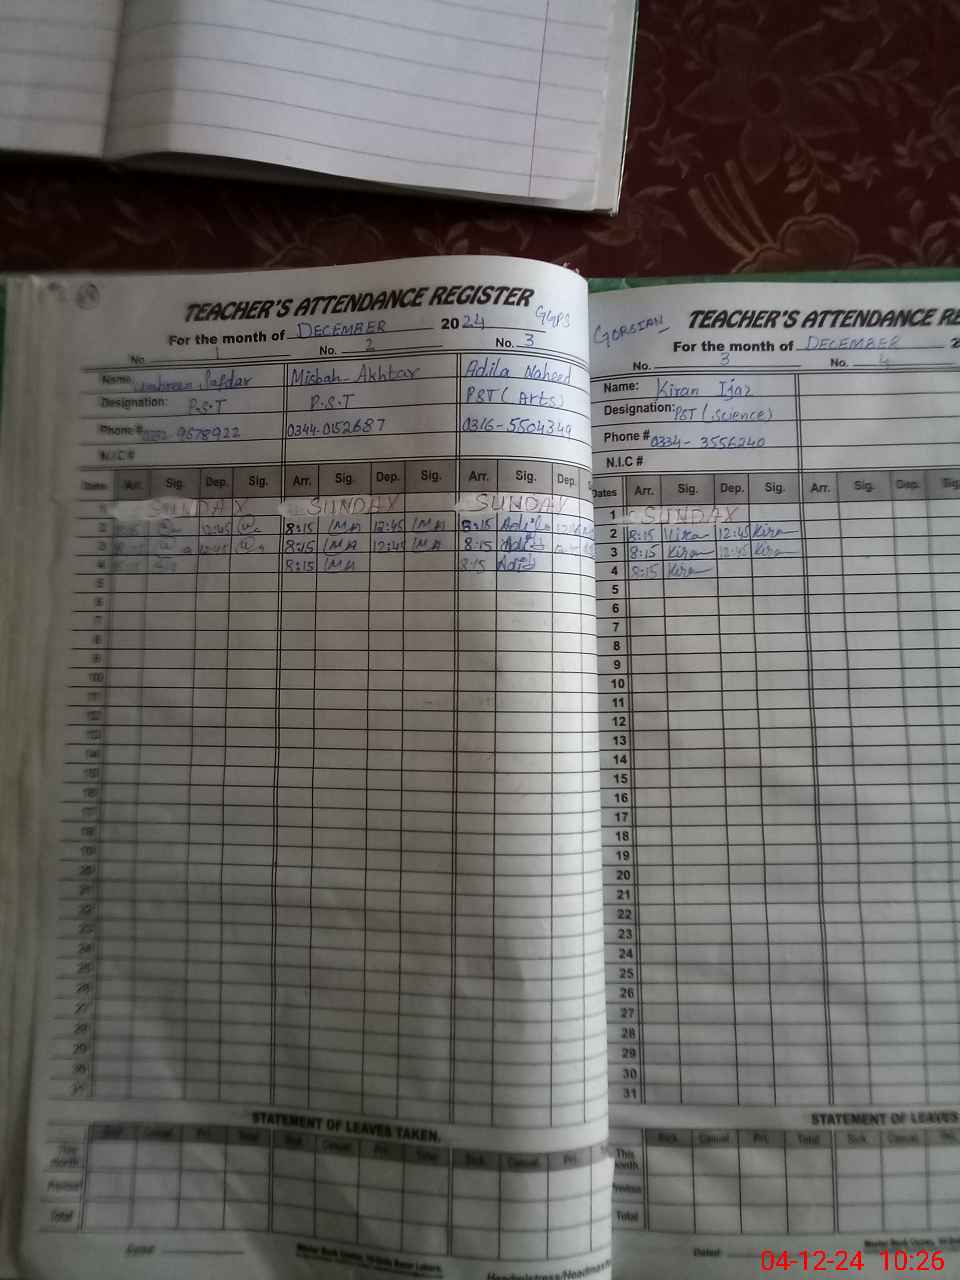 TEACHER'S ATTENDANCE REGISTER
For the month of DECEMBER 2024 GGPS
No. 1 No. 2 No. 3
Name Safdar Misbah-Akhtar Adila Naheed
Designation: P.S.T P.S.T PST (Arts)
Phone # 9578922 0344-0152687 0316-5504349
N.I.C #
Dates Arr. Sig. Dep. Sig. Arr. Sig. Dep. Sig. Arr. Sig. Dep.
1 SUNDAY SUNDAY SUNDAY
2 8:15 12:45 8:15 MA 12:45 MA 8:15 Adila
3 8:15 12:45 8:15 MA 12:45 MA 8:15 Adila
4 8:15 8:15 MA 8:15 Adila
5
6
7
8
9
10
11
12
13
14
15
16
17
18
19
20
21
22
23
24
25
26
27
28
29
30
31
STATEMENT OF LEAVES TAKEN.
Sick Casual Pri. Total Sick Casual Pri. Total Sick Casual Pri.
This month
Previous
Total
Headmistress/Headmaster
GORSIAN TEACHER'S ATTENDANCE RE
For the month of DECEMBER 2
No. 3 No. 4
Name: Kiran Ijaz
Designation: PST (Science)
Phone # 0334-3556240
N.I.C #
Dates Arr. Sig. Dep. Sig. Arr. Sig. Dep. Sig.
1 SUNDAY
2 8:15 Kiran 12:45 Kiran
3 8:15 Kiran 12:45 Kiran
4 8:15 Kiran
5
6
7
8
9
10
11
12
13
14
15
16
17
18
19
20
21
22
23
24
25
26
27
28
29
30
31
STATEMENT OF LEAVES
Sick Casual Pri. Total Sick Casual Pri.
This month
Previous
Total
Dated:
04-12-24 10:26